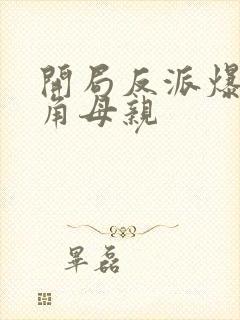 開局反派爆
角母親
畢磊